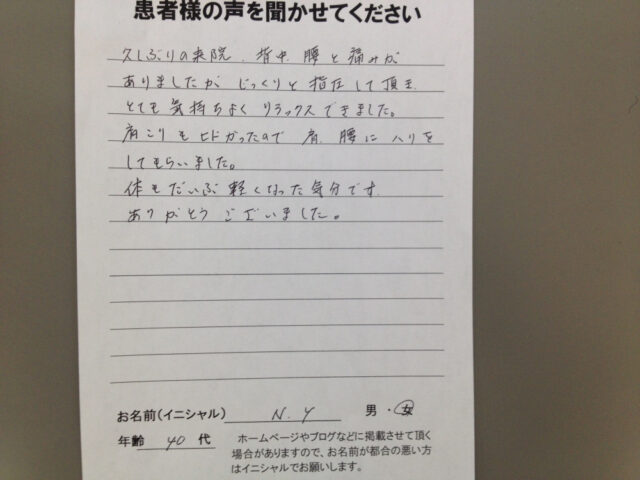 患者様の声を聞かせてください
久しぶりの来院、背中、腰と痛みが
ありましたが じっくりと 指圧して頂き
とても 気持ちよく リラックス できました。
肩こりも ヒドかったので 肩、腰に ハリを
してもらいました。
体も だいぶ 軽くなった 気分です
ありがとう ございました。
お名前(イニシャル) N.Y 男・女
年齢 40 代 ホームページやブログなどに掲載させて頂く
場合がありますので、お名前が都合の悪い方
はイニシャルでお願いします。